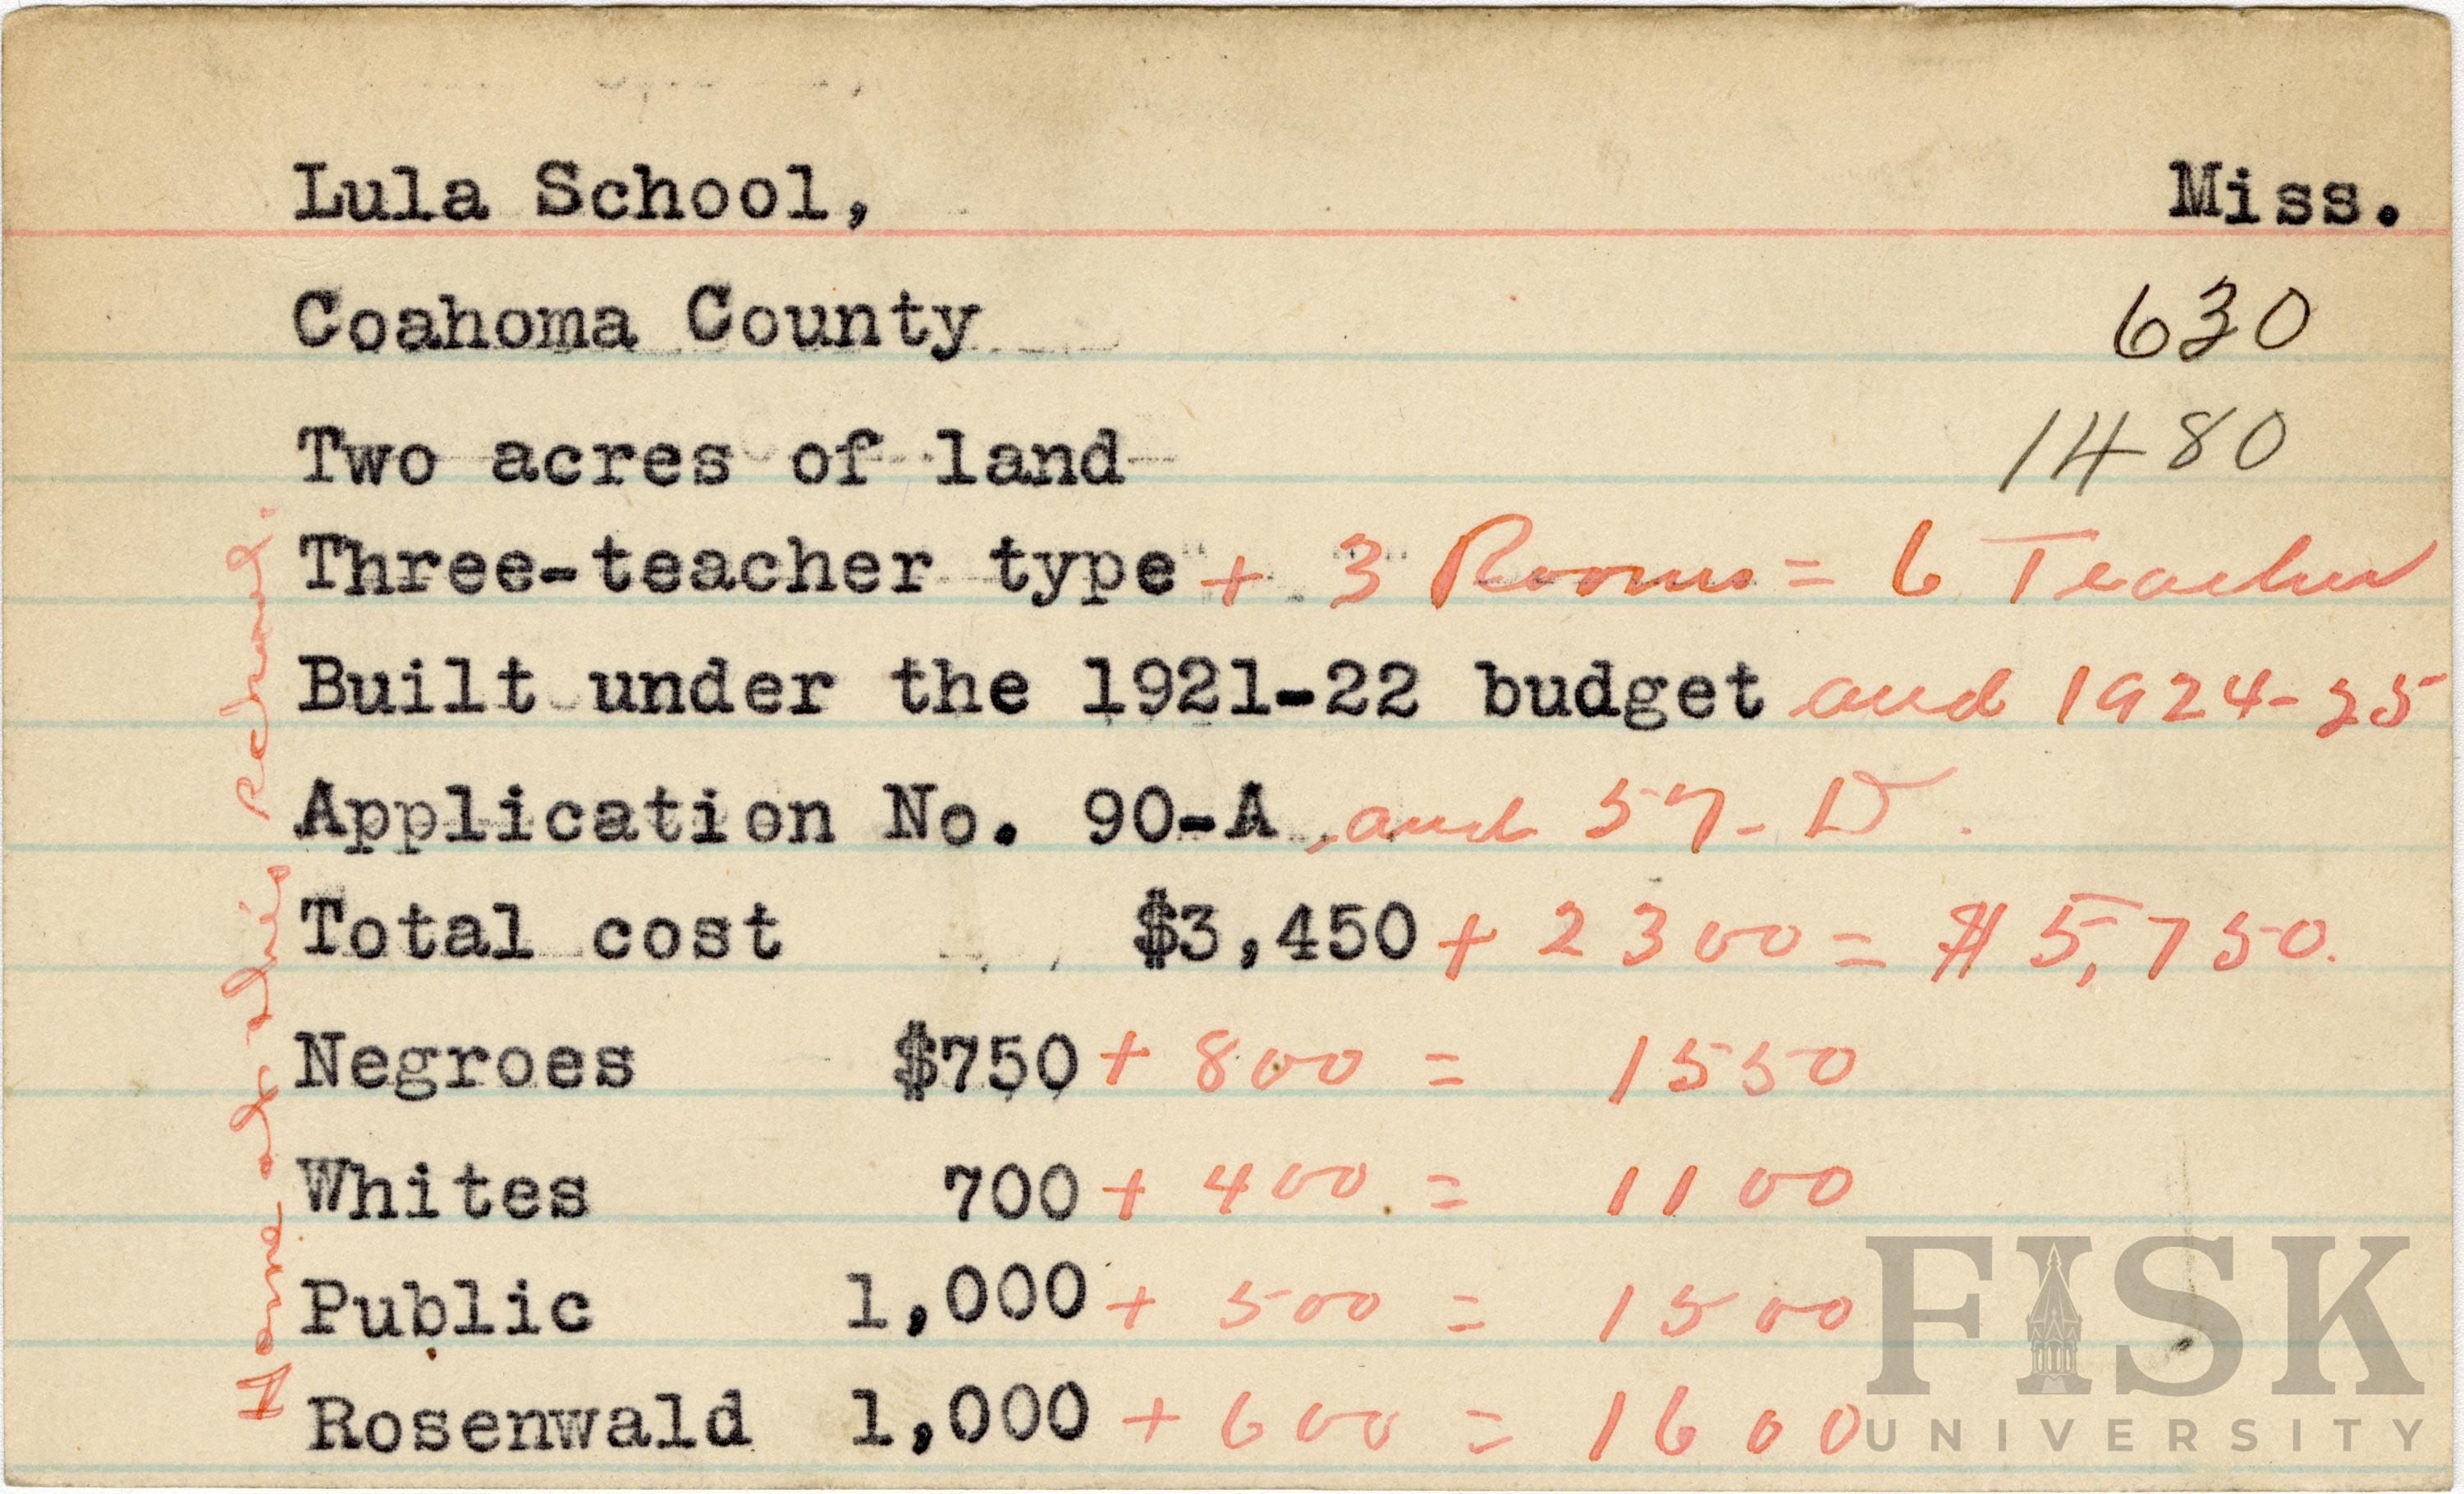 Lula School, Miss.
Coahoma County 630
Two acres of land 1480
Three-teacher type + 3 Rooms = 6 Teacher
Built under the 1921-22 budget and 1924-25
Application No. 90-A, and 57-D.
Total cost $3,450 + 2300 = $5,750.
Negroes $750 + 800 = 1550
Whites 700 + 400 = 1100
Public 1,000 + 500 = 1500
Rosenwald 1,000 + 600 = 1600
Home at this School.
FISK
UNIVERSITY